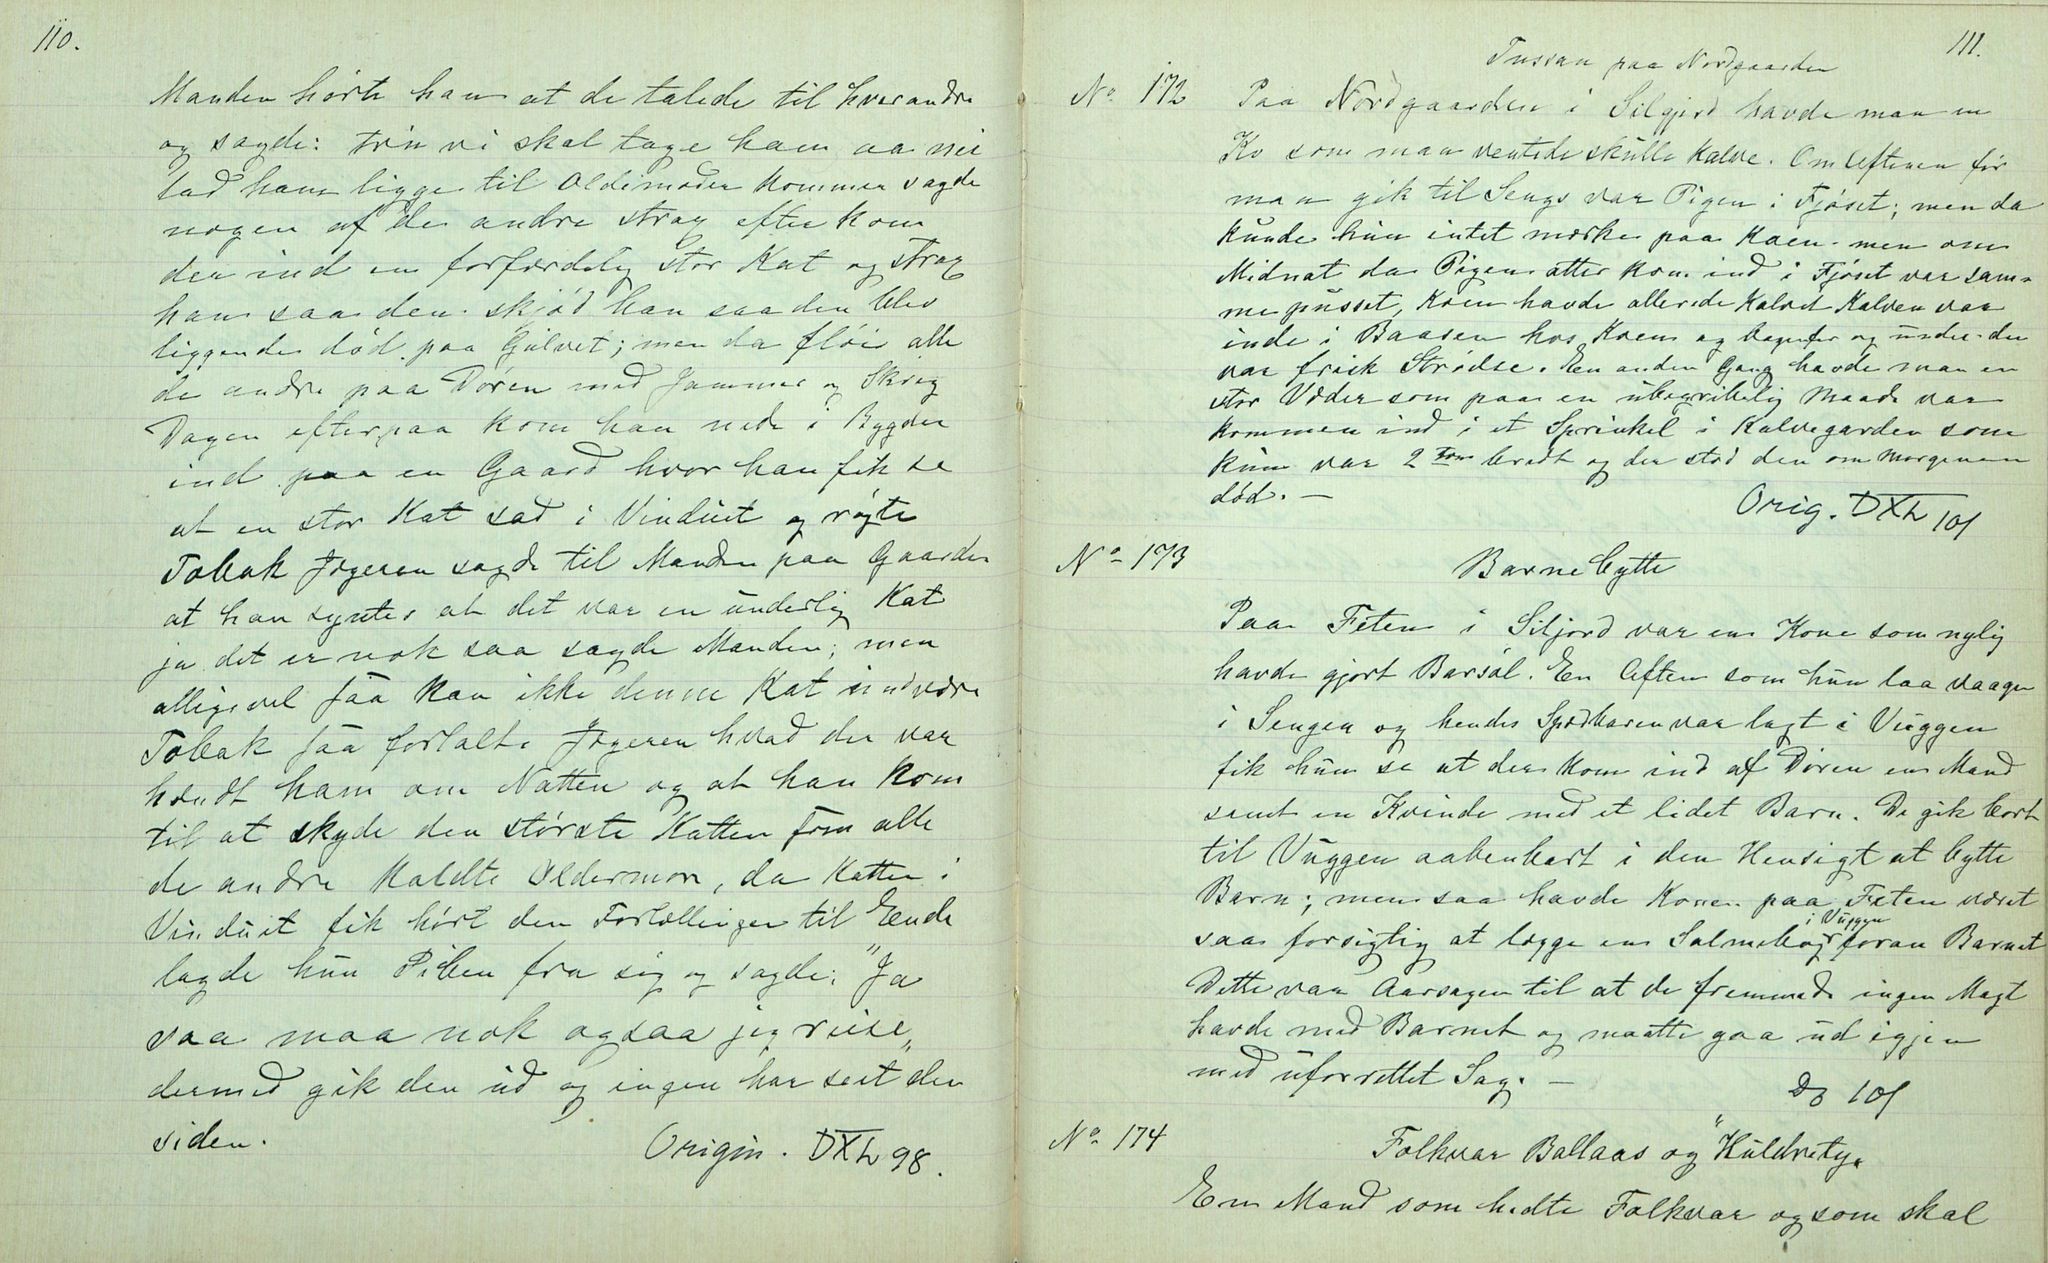 110.
Manden hørte han at de talede til hverandre
og sagde: trin vi skal tage ham aa nei
lad ham ligge til Oldimoder kommer sagde
nogen af de andre strax efter kom
der ind en forfærdelig stor Kat og strax
han saa den skjød han saa den blev
liggende død paa Gulvet; men da fløi alle
de andre paa Døren med Jammer og Skrig
Dagen efterpaa kom han nede i Bygden
ind paa en Gaard hvor han fik se
at en stor Kat sad i Vinduet og røgte
Tobak Jægeren sagde til Manden paa Gaarden
at han syntes at det var en underlig Kat
ja det er nok saa sagde Manden; men
alligevel saa kan ikke denne Kat undvære
Tobak saa fortalte Jægeren hvad der var
hændt ham om Natten og at han kom
til at skyde den største Katten som alle
de andre kaldte Oldermor, da Katten i
Vinduet fik hørt den Fortællingen til Ende
lagde hun Piben fra sig og sagde: "Ja
saa maa nok ogsaa jeg reise"
dermed gik den ud og ingen har seet den
siden.
Origin. DXL 98.
111.
Tussan paa Nordgaarden
No 172 Paa Nordgaarden i Siljord havde man en
Ko som man ventede skulle kalve. Om Aftenen før
man gik til Sengs var Pigen i Fjøset; men da
kunde hun intet mærke paa Koen men om
Midnat da Pigen atter kom ind i Fjøset var sam-
me pusset, Koen havde allerede kalvet Kalven var
inde i Baasen hos Koen og bagenfor og under den
var frisk Strødse. En anden Gang havde man en
stor Væder som paa en ubegribelig Maade var
kommen ind i et Sprinkel i Kalvegarden som
kun var 2 Tom bredt og der stod den om Morgenen
død. —
Orig. DXL 101
No 173 Barnebytte
Paa Feten i Siljord var en Kone som nylig
havde gjort Barsøl. En Aften som hun laa vaagen
i Sengen og hendes Spædbarn var lagt i Vuggen
fik hun se at der kom ind af Døren en Mand
samt en Kvinde med et lidet Barn. De gik bort
til Vuggen aabenbart i den Hensigt at bytte
Barn; men saa havde Konen paa Feten været
saa forsigtig at lægge en Salmebog i Vuggen foran Barnet
Dette var Aarsagen til at de fremmede ingen Magt
havde med Barnet og maatte gaa ud igjen
med uforrettet Sag. —
Do 101
No 174 Folkvar Ballaas og "Huldrety.
En Mand som hedte Folkvar og som skal